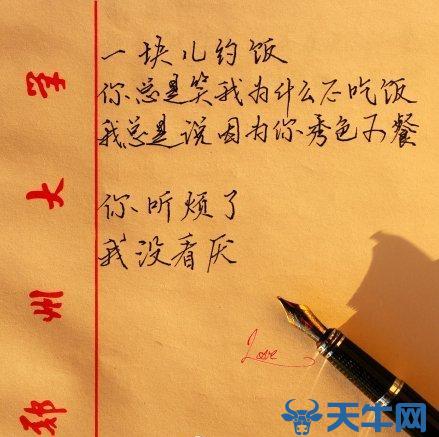 一块儿约饭
你总是笑我为什么不吃饭
我总是说因为你秀色可餐
你听烦了
我没看厌
Love
郑州大学
天牛网